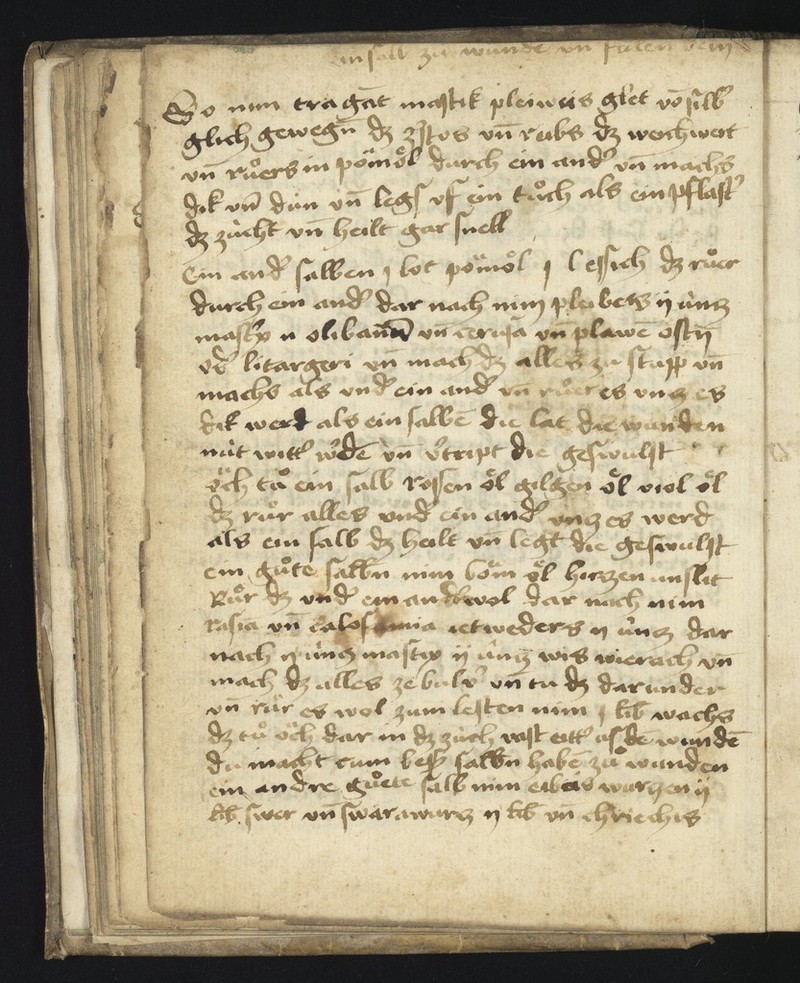 ein salb zu wunde vn fulen bein
So nim tragāt mastik pleiwiis glet vō silbˀ
glich gewegn̄ dz zstos vn̄ rubs dz weich wert
vn̄ růers in pömöl durch ein andˀ vn̄ machs
dik vn̄ dün vn̄ legs vf ein tůch als ein pflastˀ
dz zücht vn̄ heilt gar snell
Ein andˀ salben j lot pömöl j l essich dz růer
durch ein andˀ dar nach nim ij ünz
mastix n olibanū vn̄ cerusa vn̄
litargeri vn̄ mach dz alles zu stupp vn̄
machs als vndˀ ein andˀ vn̄ rüer es vnz es
dik werd als ein salbē die lat die wunden
nüt witˀ wˀdē vn̄ vˀtript die geswulst
öch tů ein salb rossen öl gilgen öl viol öl
dz rür alles vndˀ ein andˀ vnz es werd
als ein salb dz heilt vn̄ legt die geswulst
ein gůte salbn̄ nim böm öl hirzen unslit
Růr dz vndˀ ein andˀ wol dar nach nim
rasia vn̄ ietweders ij ünz dar
nach ij ünz mastix ij ünz wis wierach vn̄
mach dz alles ze bulvˀ vn̄ tu dz darunder
vn̄ rür es wol zum lesten nim j lib wachs
dz tů öch dar in dz züch vast eitˀ us dē wundē
du macht cum bessˀ salbn̄ haben zů wunden
ein andre gůete salb nim eibeis wurzen ij
lib. swer vn̄ swarzwurz ij lib vn̄ chriechis